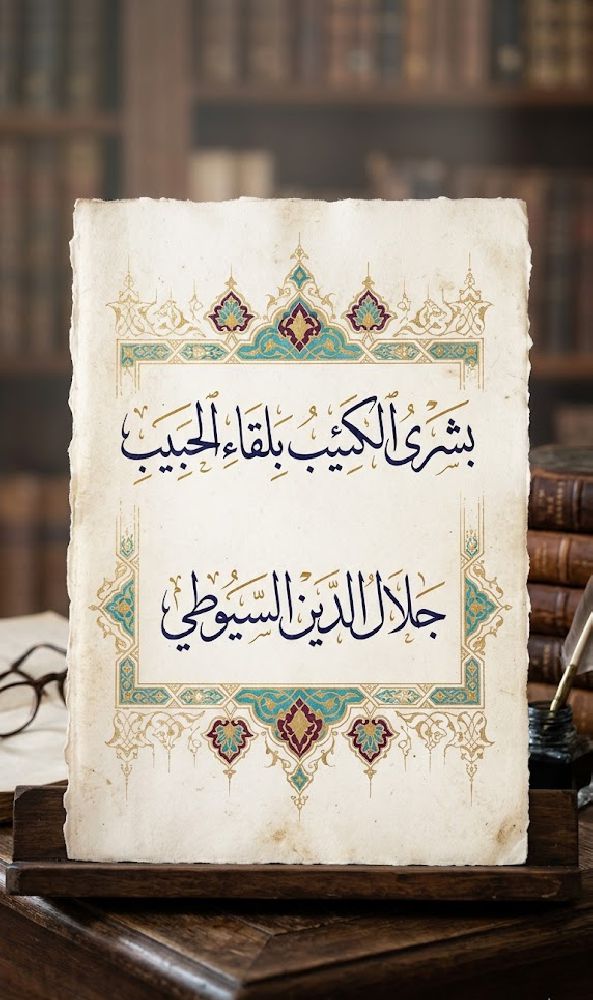 بشرى الكئيب بلقاء الحبيب
جلال الدين السيوطي